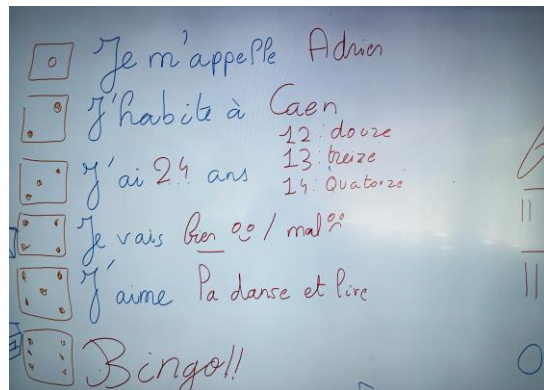 Je m'appelle Adrien
J'habite à Caen
12 : douze
13 : treize
14 : Quatorze
J'ai 24 ans
Je vais bien / mal
J'aime la danse et lire
Bingo!!